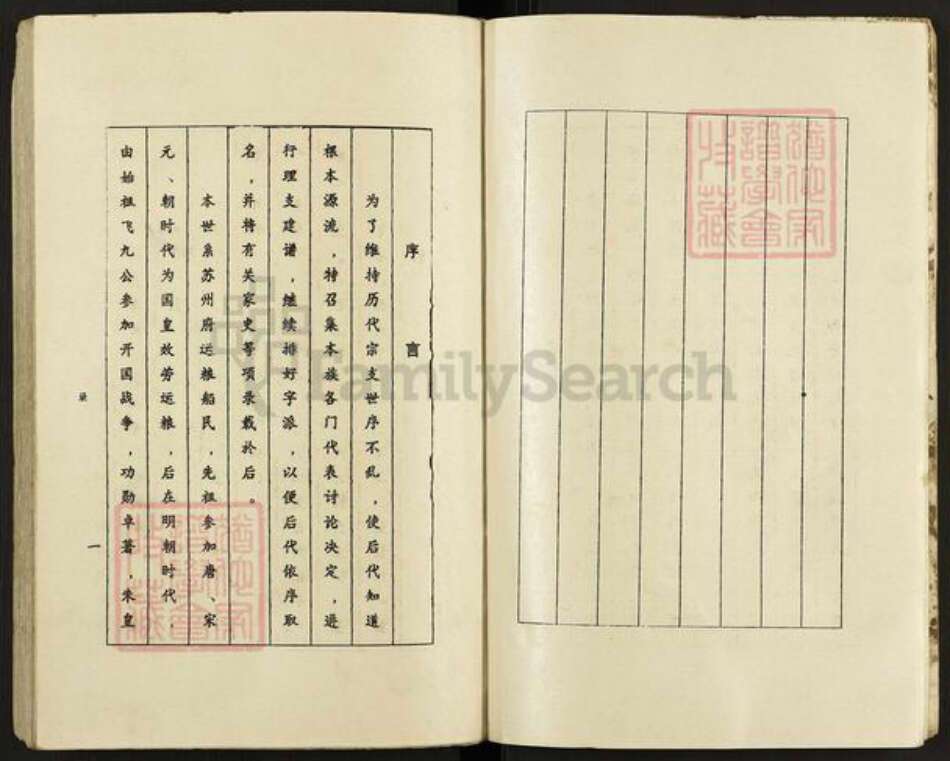 序言
为了维持历代宗支世序不乱，使后代知道
根本源流，特召集本族各门代表讨论决定，进
行理支建谱，继续排好字派，以便后代依序取
名，并将有关家史等项录载于后。
本世系苏州府运粮船民，先祖参加唐、宋
元、朝时代为国皇效劳运粮，后在明朝时代，
由始祖飞九公参加开国战争，功勋卓著，朱皇
一
FamilySearch